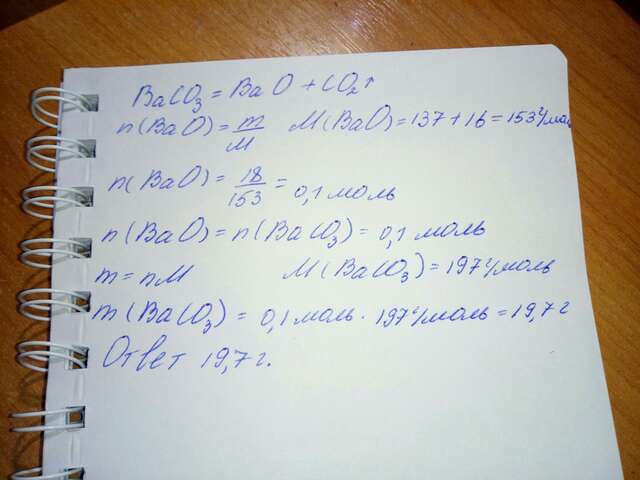 BaCO₃ = BaO + CO₂↑
n(BaO) = m/M M(BaO) = 137 + 16 = 153 г/моль
n(BaO) = 18/153 = 0,1 моль
n(BaO) = n(BaCO₃) = 0,1 моль
m = nM M(BaCO₃) = 197 г/моль
m(BaCO₃) = 0,1 моль · 197 г/моль = 19,7 г
Ответ 19,7 г.